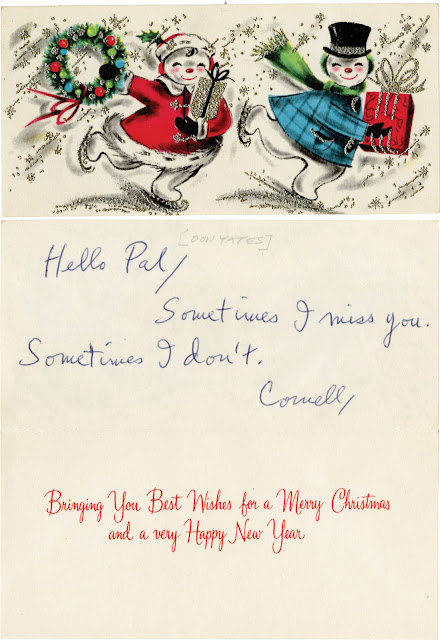 [DON YATES]
Hello Pal,
Sometimes I miss you.
Sometimes I don't.
Cornell,
Bringing You Best Wishes for a Merry Christmas
and a very Happy New Year